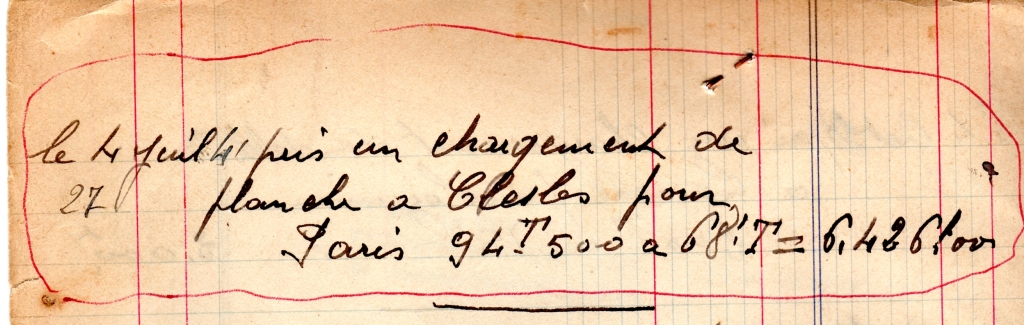 le 4 Juil 41 pris un chargement de
27 planche a Clesles pour
Paris 94T500 a 68f T = 6.426f00